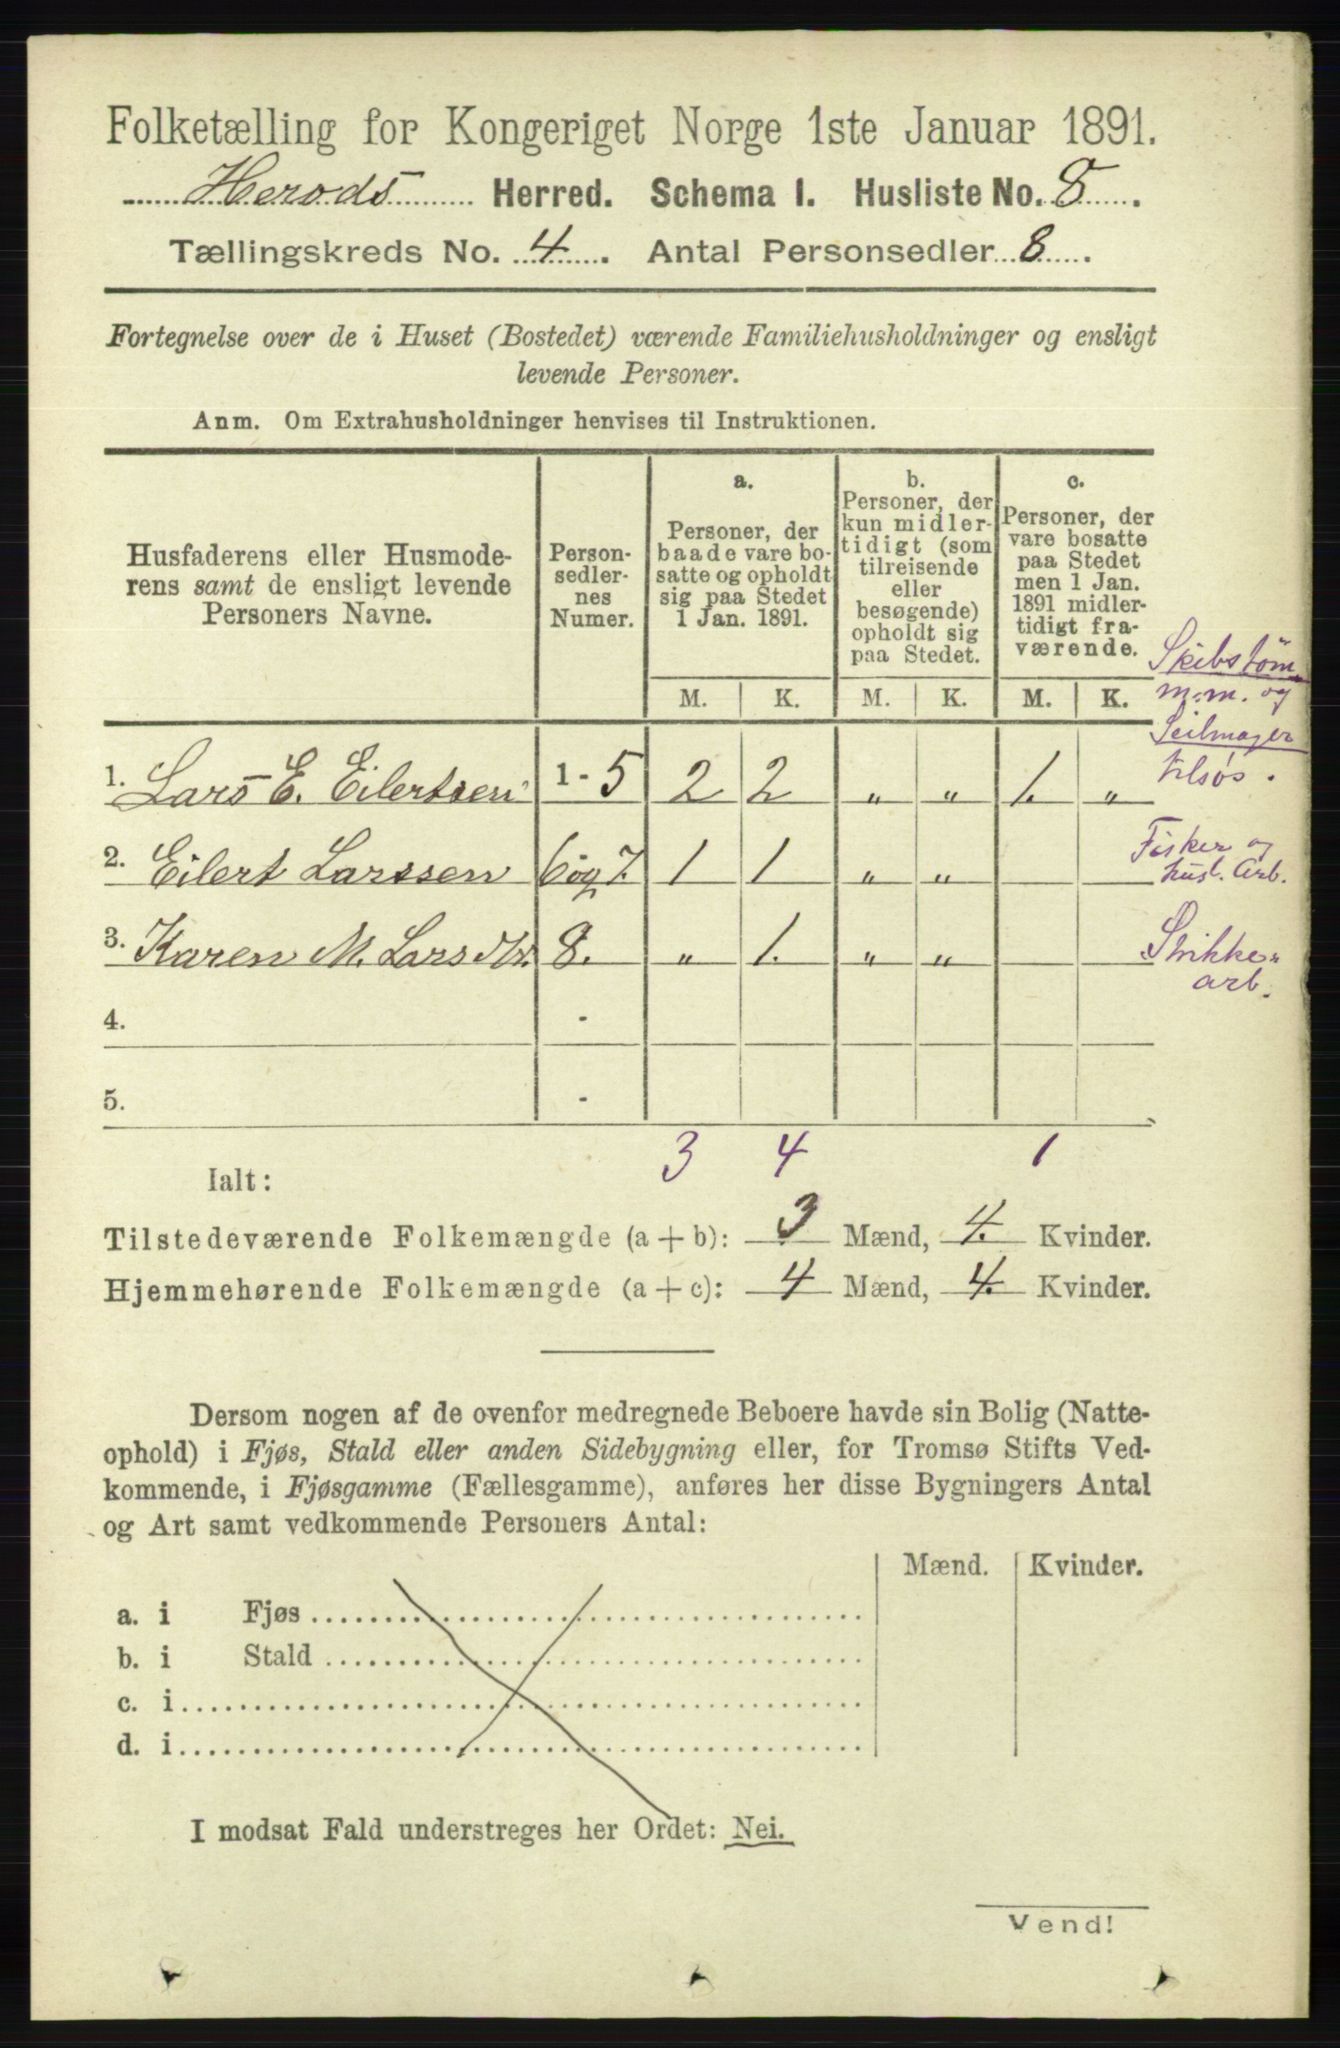 Folketælling for Kongeriget Norge 1ste Januar 1891.
Herods Herred. Schema I. Husliste No. 8.
Tællingskreds No. 4. Antal Personsedler 8.
Fortegnelse over de i Huset (Bostedet) værende Familiehusholdninger og ensligt
levende Personer.
Anm. Om Extrahusholdninger henvises til Instruktionen.
Husfaderens eller Husmode-
rens samt de ensligt levende
Personers Navne.
Person-
sedler-
nes
Numer.
a.
Personer, der
baade vare bo-
satte og opholdt
sig paa Stedet
1 Jan. 1891.
b.
Personer, der
kun midler-
tidigt (som
tilreisende
eller
besøgende)
opholdt sig
paa Stedet.
c.
Personer, der
vare bosatte
paa Stedet
men 1 Jan.
1891 midler-
tidigt fra-
værende.
M. K. M. K. M. K.
Skibstøm.
m.m. og
Seilmager
tilsøs.
1. Lars E. Eilertsen 1 - 5 2 2 " " 1. "
2. Eilert Larssen 6 og 7. 1 1 " "
Fisker og
husl. Arb.
3. Karen M. Larsdtr. 8. " 1. " "
Strikke-
arb.
4. -
5. -
3 4 1
Ialt:
Tilstedeværende Folkemængde (a + b): 3 Mænd, 4. Kvinder.
Hjemmehørende Folkemængde (a + c): 4 Mænd, 4. Kvinder.
Dersom nogen af de ovenfor medregnede Beboere havde sin Bolig (Natte-
ophold) i Fjøs, Stald eller anden Sidebygning eller, for Tromsø Stifts Ved-
kommende, i Fjøsgamme (Fællesgamme), anføres her disse Bygningers Antal
og Art samt vedkommende Personers Antal:
Mænd. Kvinder.
a. i Fjøs
b. i Stald
c. i
d. i
I modsat Fald understreges her Ordet: Nei.
Vend!